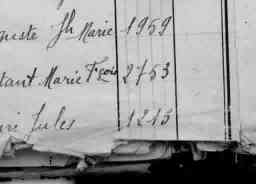 niste Jh Marie 1959
tant Marie Fçois 2753
ré Jules 1215